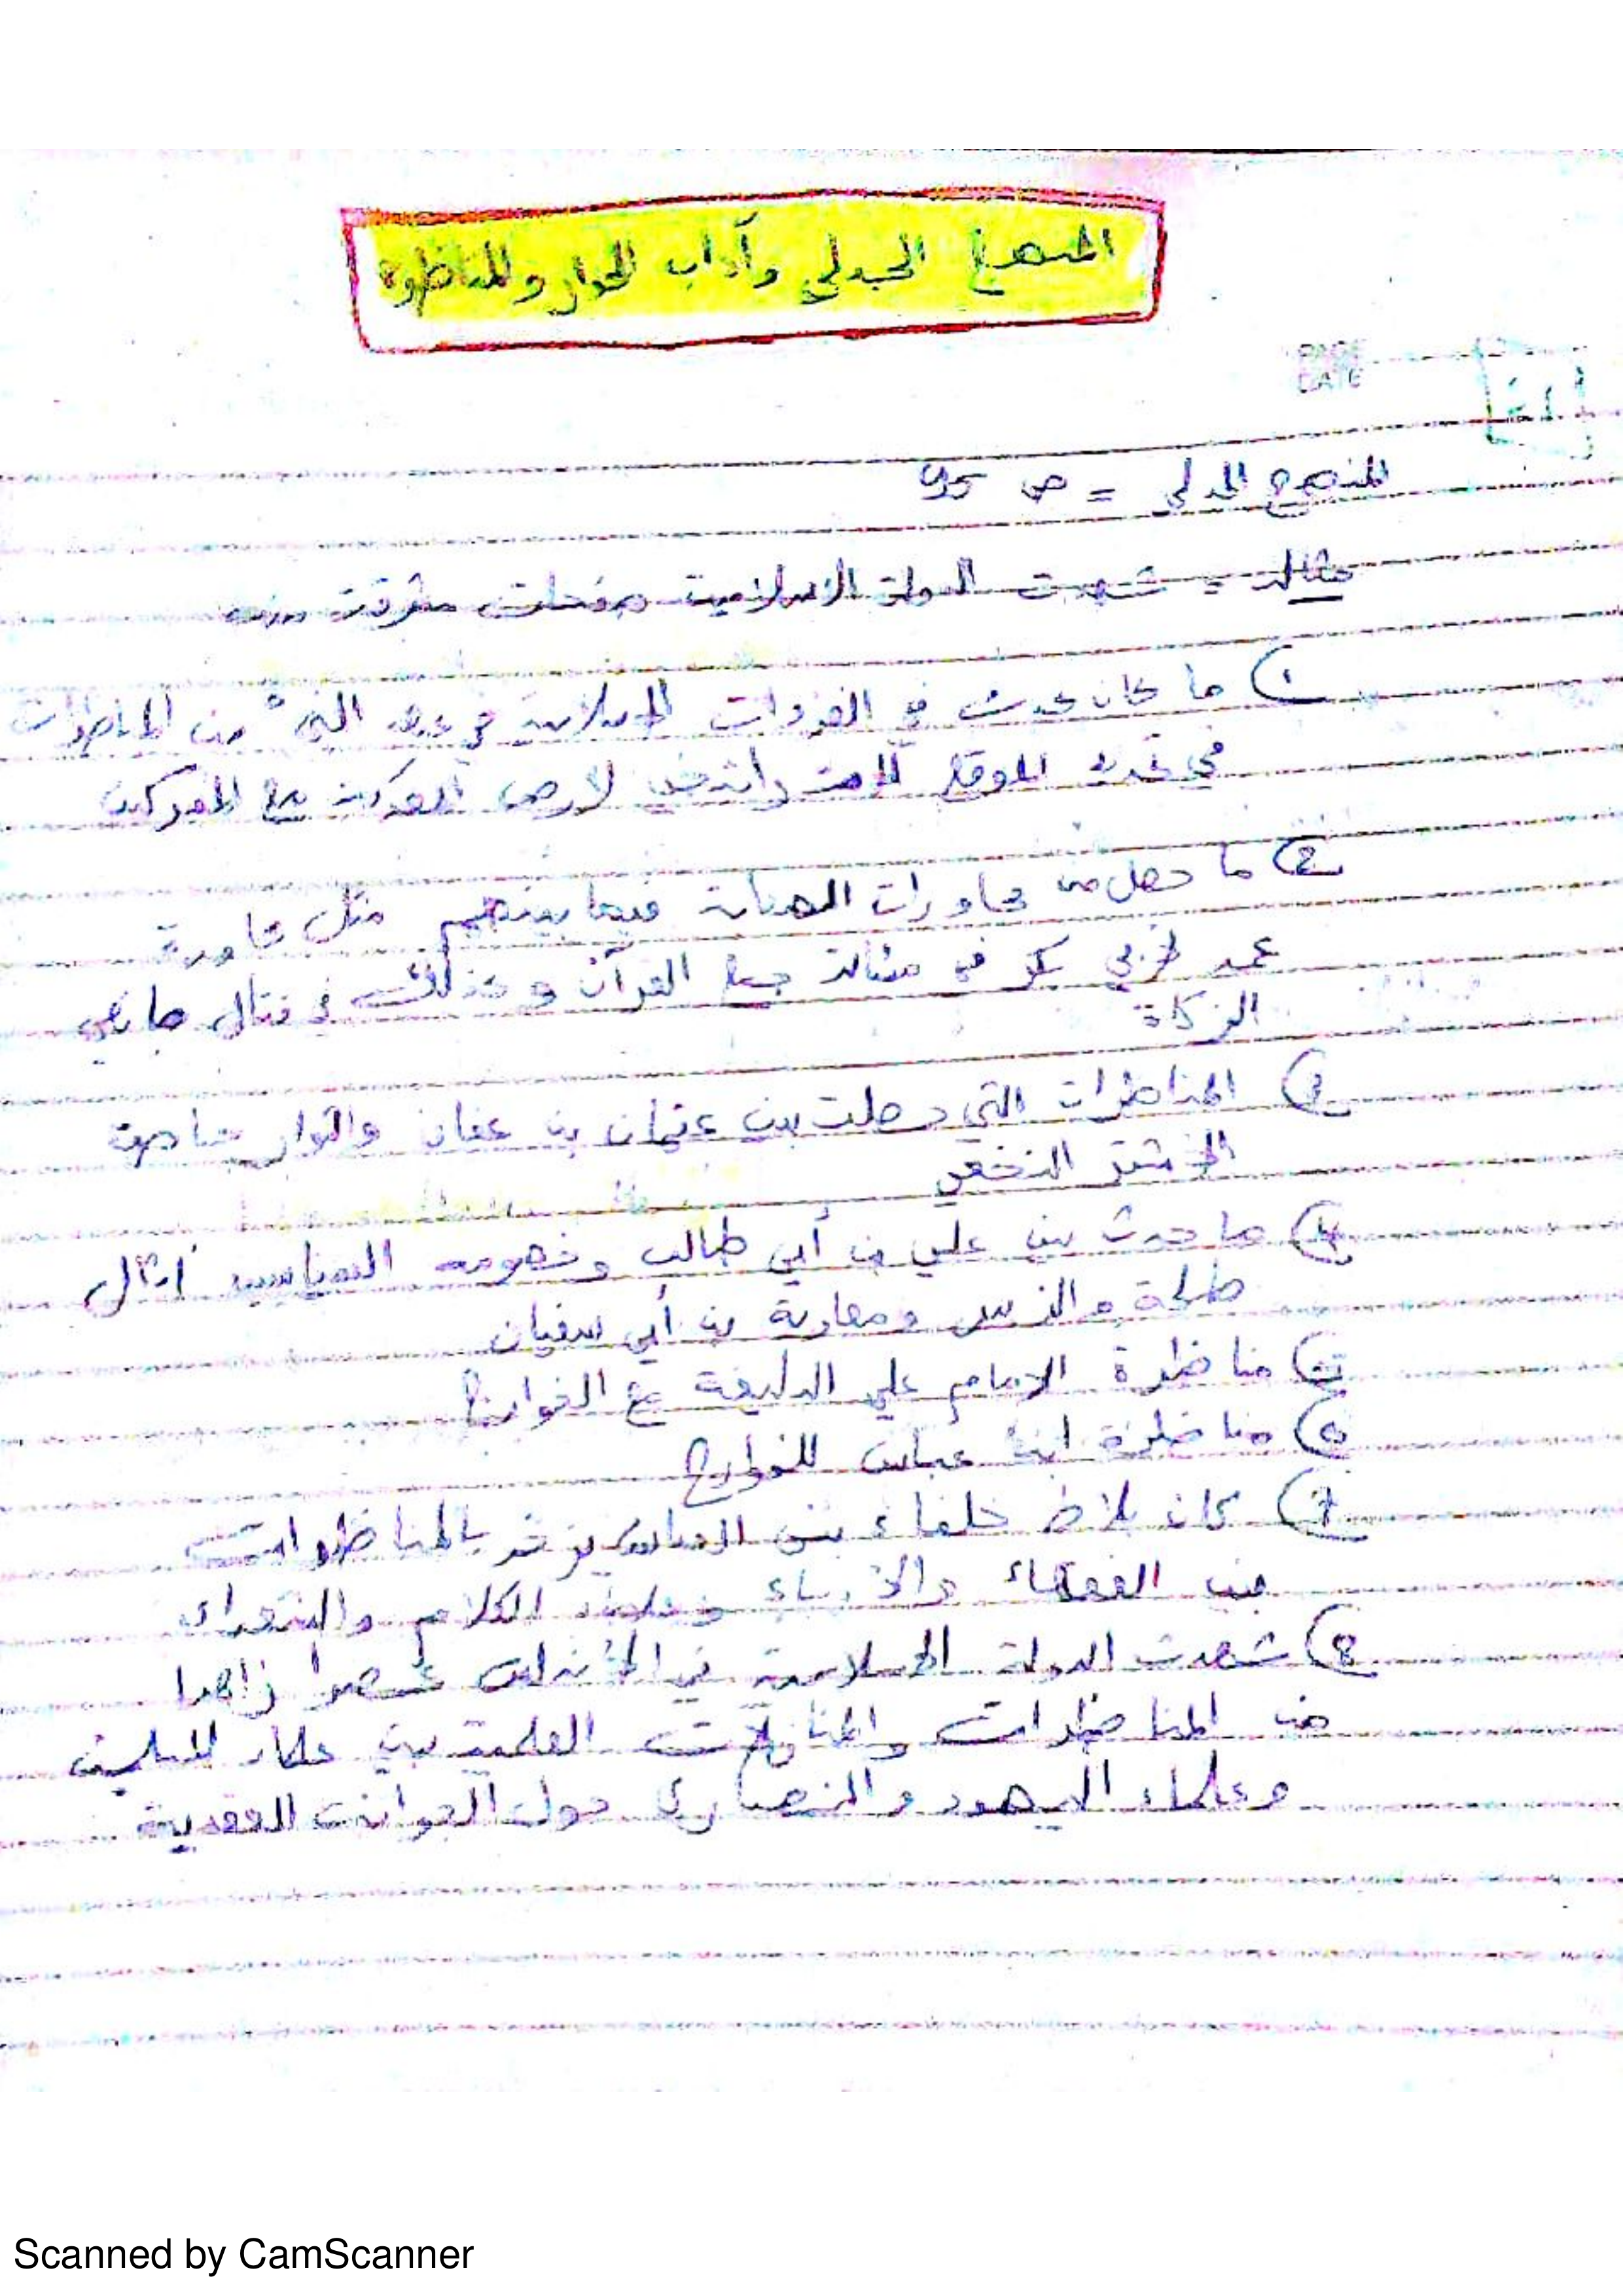 المنهج الجدلي وآداب الحوار والمناظرة
PAGE
DATE
المنهج الجدلي = ص 95
مثال = شهدت الدولة الاسلامية صفحات مشرقة من
١) ما كان يحدث في الغزوات الاسلامية في عهد النبي من المناظرات
في تحديد الموقع لأرض المعركة مع المشركين
2) ما حصل من محاورات الصحابة فيما بينهم مثل محاورة
عمر لأبي بكر في مسألة جمع القرآن وكذلك في قتال مانعي
الزكاة
3) المناظرات التي حصلت بين عثمان بن عفان والثوار خاصة
الأشتر النخعي
4) ما حدث بين علي بن أبي طالب وخصومه السياسيين أمثال
طلحة والزبير ومعاوية بن أبي سفيان
مناظرة الامام علي البليغة مع الخوارج
مناظرة ابن عباس للخوارج
7) كان بلاط خلفاء بني العباس يزخر بالمناظرات
بين الفقهاء والأدباء وعلماء الكلام والشعراء
8) شهدت الدولة الاسلامية في الأندلس عصرا زاهرا
من المناظرات والمنازلات العلمية بين علماء المسلمين
وعلماء اليهود والنصارى حول الجوانب العقدية
Scanned by CamScanner